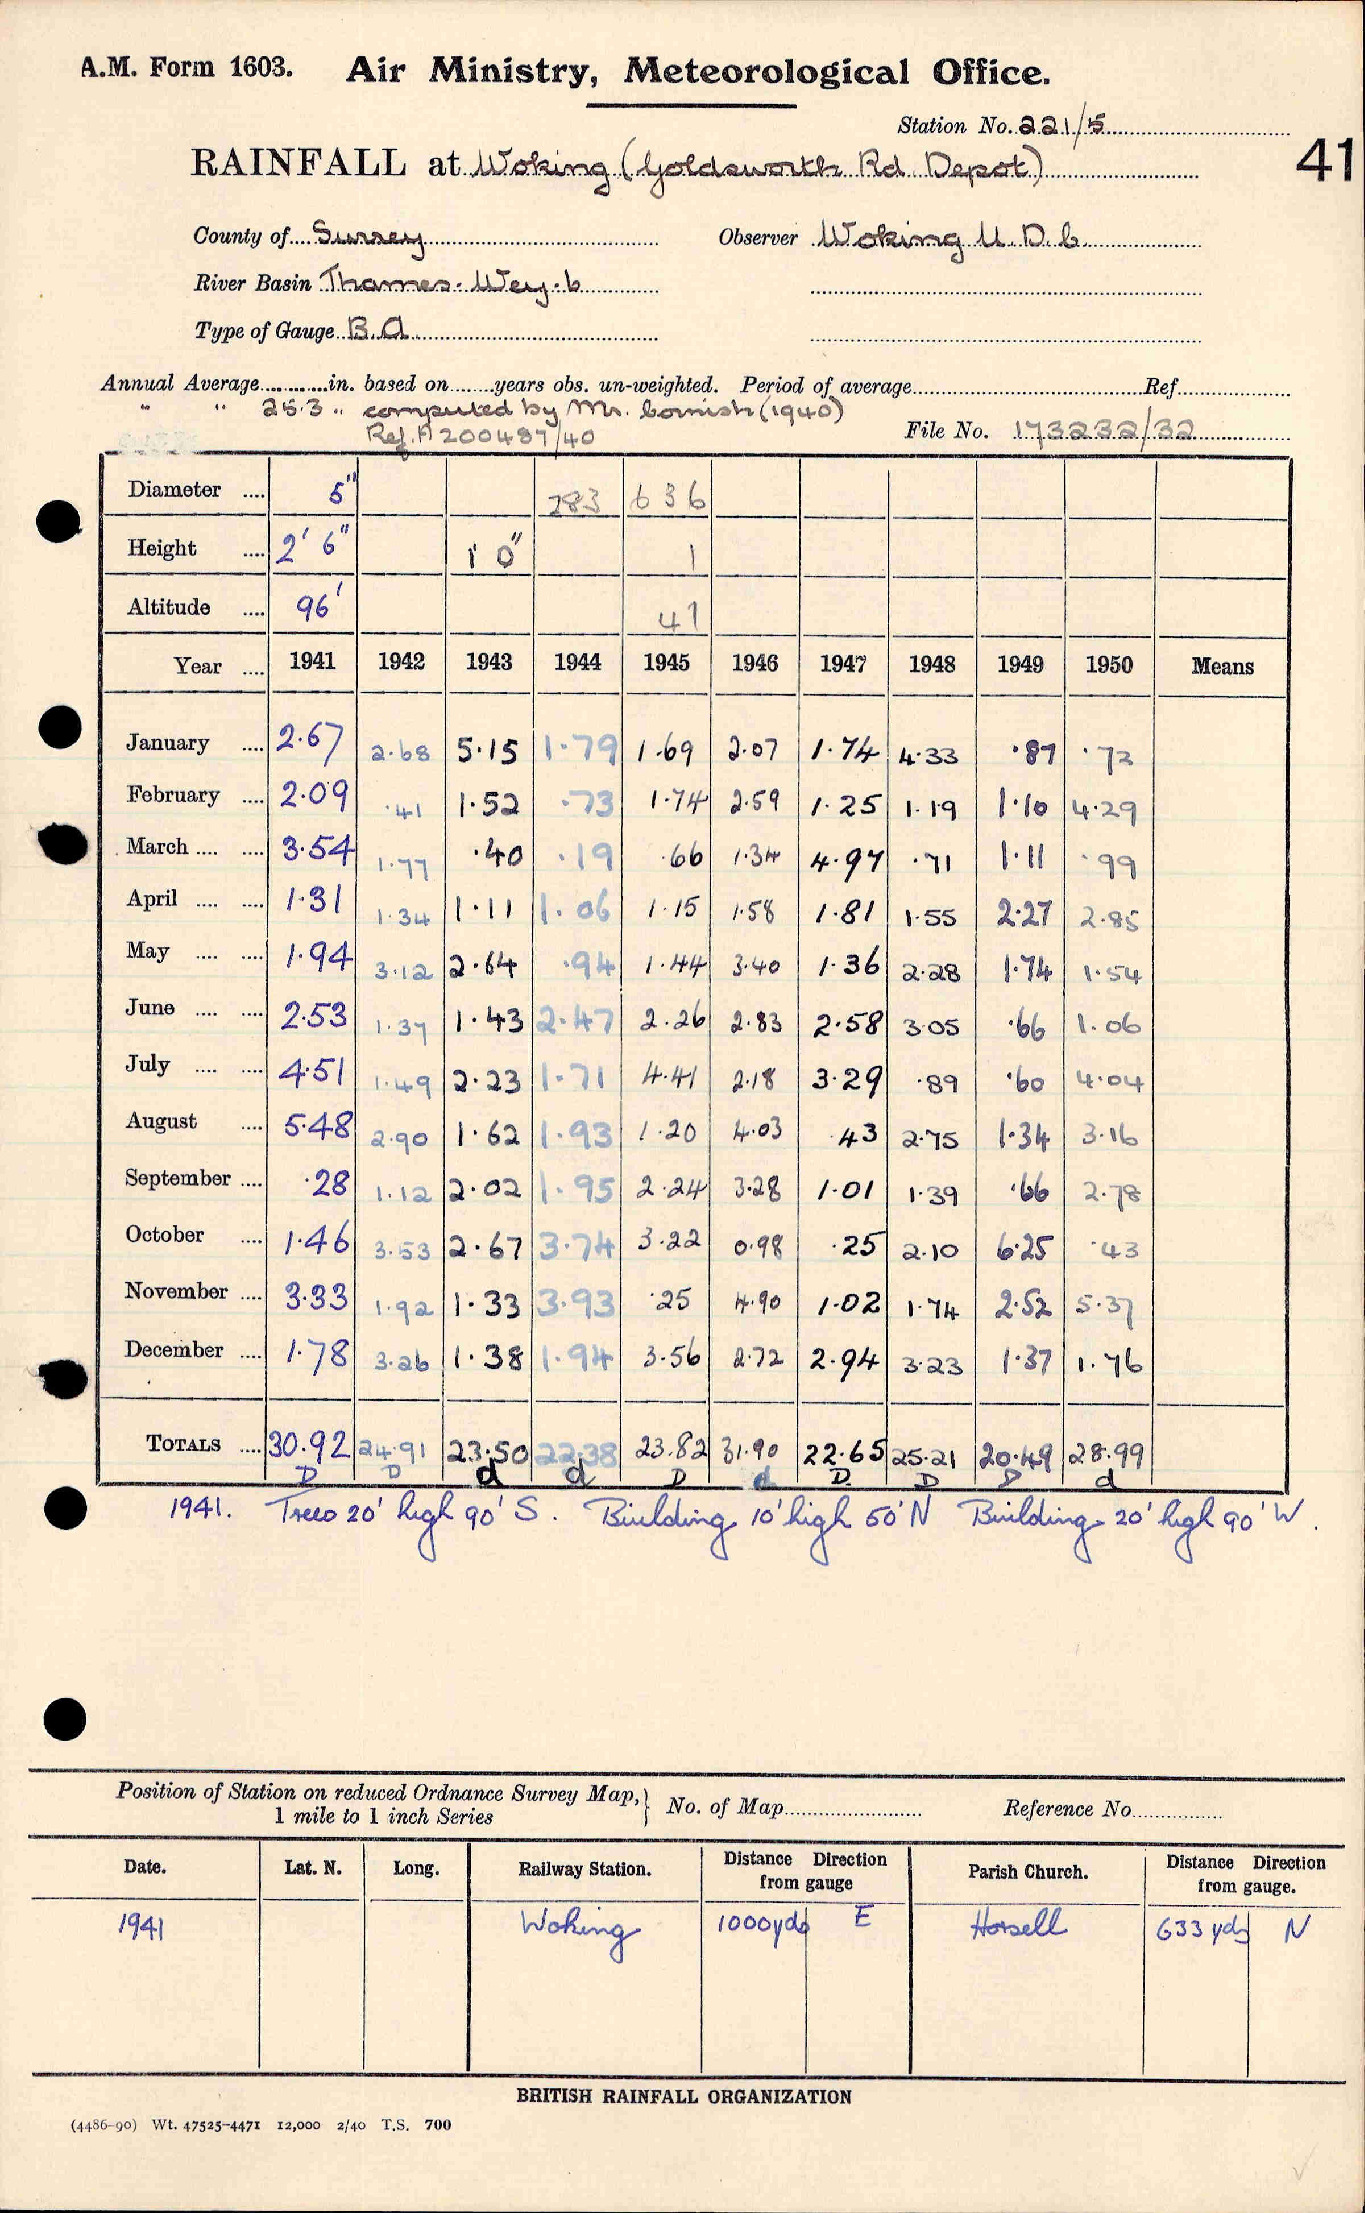 A.M. Form 1603. Air Ministry, Meteorological Office.
Station No. 221/5
41
RAINFALL at Woking (Goldsworth Rd Depot)
County of Surrey Observer Woking U.D.C.
River Basin Thames. Wey. b
Type of Gauge B.A.
Annual Average............in. based on........years obs. un-weighted. Period of average.................Ref.................
" " 25.3 " computed by Mr. Cornish (1940)
Ref. A200487/40 File No. 173232/32
Diameter .... 5" 283 636
Height .... 2' 6" 1' 0" 1
Altitude .... 96' 41
Year .... 1941 1942 1943 1944 1945 1946 1947 1948 1949 1950 Means
January .... 2.67 2.68 5.15 1.79 1.69 2.07 1.74 4.33 .87 .72
February .... 2.09 .41 1.52 .73 1.74 2.59 1.25 1.19 1.10 4.29
March .... .... 3.54 1.77 .40 .19 .66 1.34 4.97 .71 1.11 .99
April .... .... 1.31 1.34 1.11 1.06 1.15 1.58 1.81 1.55 2.27 2.85
May .... .... 1.94 3.12 2.64 .94 1.44 3.40 1.36 2.28 1.74 1.54
June .... .... 2.53 1.37 1.43 2.47 2.26 2.83 2.58 3.05 .66 1.06
July .... .... 4.51 1.49 2.23 1.71 4.41 2.18 3.29 .89 .60 4.04
August .... 5.48 2.90 1.62 1.93 1.20 4.03 .43 2.75 1.34 3.16
September .... .28 1.12 2.02 1.95 2.24 3.28 1.01 1.39 .66 2.78
October .... 1.46 3.53 2.67 3.74 3.22 0.98 .25 2.10 6.25 .43
November .... 3.33 1.92 1.33 3.93 .25 4.90 1.02 1.74 2.52 5.37
December .... 1.78 3.26 1.38 1.94 3.56 2.72 2.94 3.23 1.37 1.76
TOTALS .... 30.92 24.91 23.50 22.38 23.82 31.90 22.65 25.21 20.49 28.99
D D d d D d D D D d
1941. Trees 20' high 90' S. Building 10' high 50' N Building 20' high 90' W.
Position of Station on reduced Ordnance Survey Map,} No. of Map........................ Reference No................
1 mile to 1 inch Series
Date. Lat. N. Long. Railway Station. Distance Direction from gauge Parish Church. Distance Direction from gauge.
1941 Woking 1000yds E Horsell 633 yds N
BRITISH RAINFALL ORGANIZATION
(4486-90) Wt. 47525-4471 12,000 2/40 T.S. 700